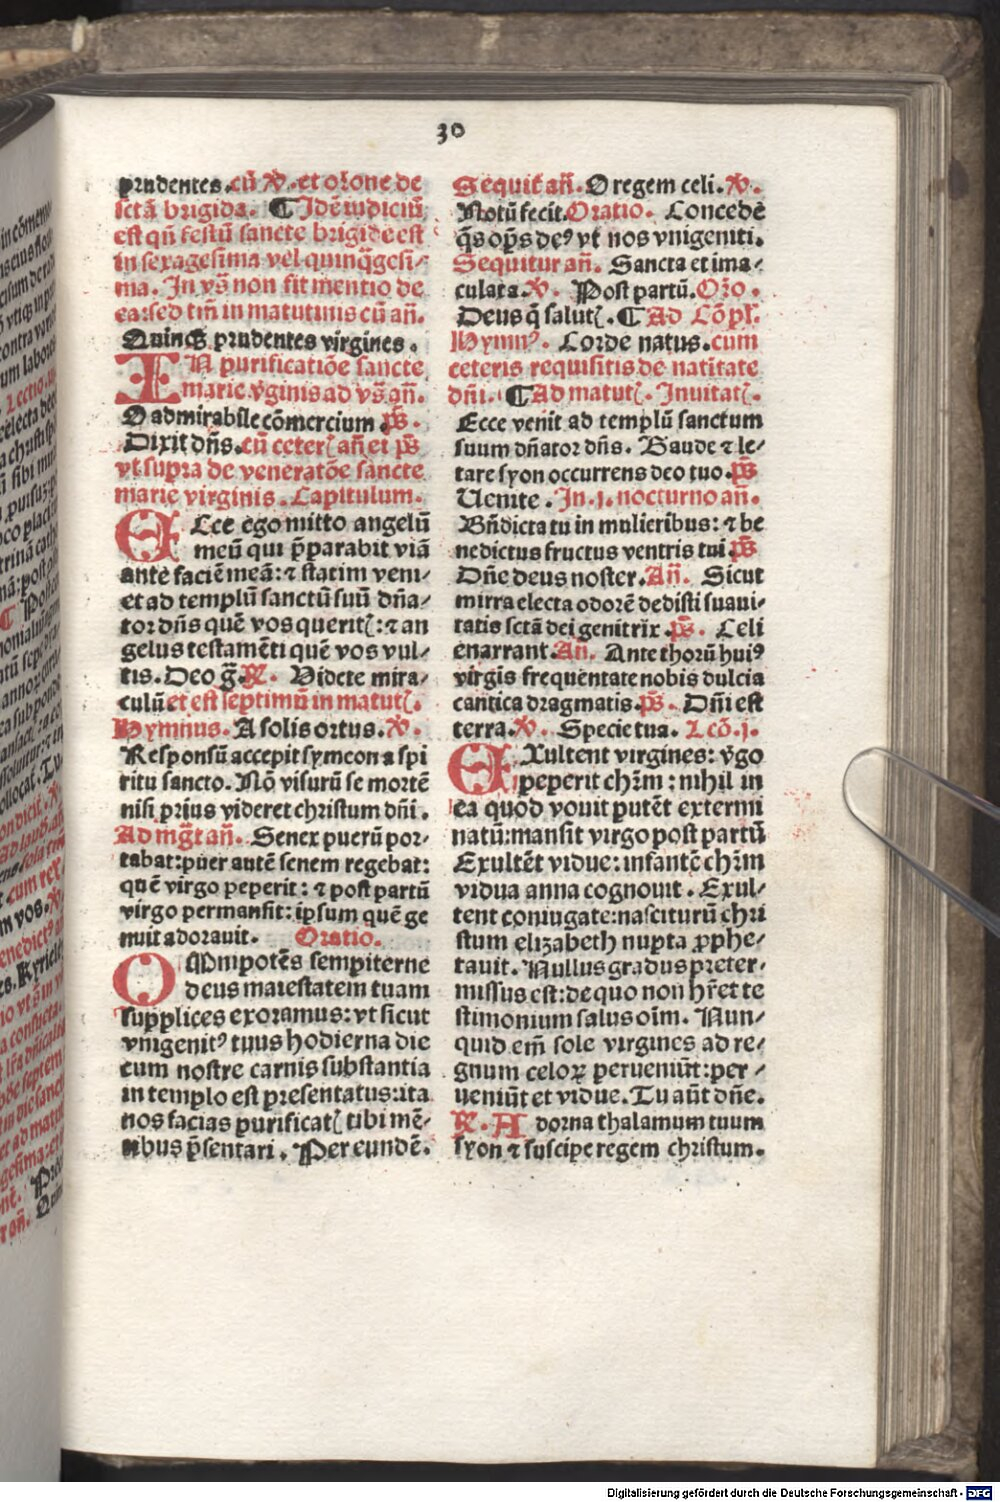 30
prudentes. cū ℣. et oꝛone de
sctā brigida. ¶ Idē iudiciū
est qn̄ festū sancte brigide est
in sexagesima vel quinq̄gesi⸗
ma. In vs̄ non fit mentio de
ea: sed tm̄ in matutinis cū añ.
Quinqꝫ prudentes virgines.
IN purificatiōe sancte
marie v̄ginis ad vs̄ añ.
O admirabile cōmercium. ps̄.
Dixit dn̄s. cū ceter̄ añ et ps̄
vt supra de veneratōe sancte
marie virginis. Capitulum.
ECce ego mitto angelū
meū qui p̄parabit viā
ante faciē meā: ⁊ statim veni⸗
et ad templū sanctū suū dn̄a⸗
tor dn̄s quē vos querit̄: ⁊ an
gelus testamēti quē vos vul⸗
tis. Deo ḡ. ℟. Videte mira⸗
culū et est septimū in matut̄.
Hymnus. A solis ortus. ℣.
Responsū accepit symeon a spi
ritu sancto. Nō visurū se mortē
nisi prius videret christum dn̄i.
Ad mḡt añ. Senex puerū por⸗
tabat: puer autē senem regebat:
quē virgo peperit: ⁊ post partū
virgo permansit: ipsum quē ge
nuit adorauit. Oratio.
OMnipotēs sempiterne
deus maiestatem tuam
supplices exoramus: vt sicut
vnigenitꝰ tuus hodierna die
cum nostre carnis substantia
in templo est presentatus: ita
nos facias purificat̄ tibi mē⸗
tibus p̄sentari. Per eundē.
Sequit̄ añ. O regem celi. ℣.
Notū fecit. Oratio. Concede
q̄s op̄s deꝰ vt nos vnigeniti.
Sequitur añ. Sancta et ima⸗
culata. ℣. Post partū. Oꝛo.
Deus q̄ salut̄. ¶ Ad Cōpl̄.
Hymnꝰ. Corde natus. cum
ceteris requisitis de natitate
dn̄i. ¶ Ad matut̄. Inuitat̄.
Ecce venit ad templū sanctum
suum dn̄ator dn̄s. Gaude ⁊ le⸗
tare syon occurrens deo tuo. ps̄
Uenite. In .j. nocturno añ.
Bn̄dicta tu in mulieribus: ⁊ be
nedictus fructus ventris tui. ps̄
Dn̄e deus noster. Añ. Sicut
mirra electa odorē dedisti suaui⸗
tatis sctā dei genitrix. ps̄. Celi
enarrant. Añ. Ante thorū huiꝰ
virgis̄ frequentate nobis dulcia
cantica dragmatis. ps̄. Dn̄i est
terra. ℣. Specie tua. Lcō .j.
EXultent virgines: v̄go
peperit chr̄m: nihil in
ea quod vouit putēt extermi
natū: mansit virgo post partū
Exultēt vidue: infantē chr̄m
vidua anna cognouit. Exul⸗
tent coniugate: nasciturū chri
stum elizabeth nupta ꝓphe⸗
tauit. Nullus gradus preter⸗
missus est: de quo non hr̄et te
stimonium salus oīm. Nun⸗
quid em̄ sole virgines ad re⸗
gnum celoꝝ perueniūt: per⸗
ueniūt et vidue. Tu aūt dn̄e.
℟. Adorna thalamum tuum
syon ⁊ suscipe regem christum.
Digitalisierung gefördert durch die Deutsche Forschungsgemeinschaft - DFG